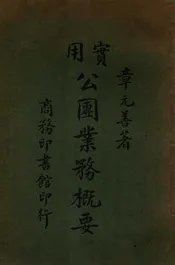 實用
公團業務概要
章元善著
商務印書館印行